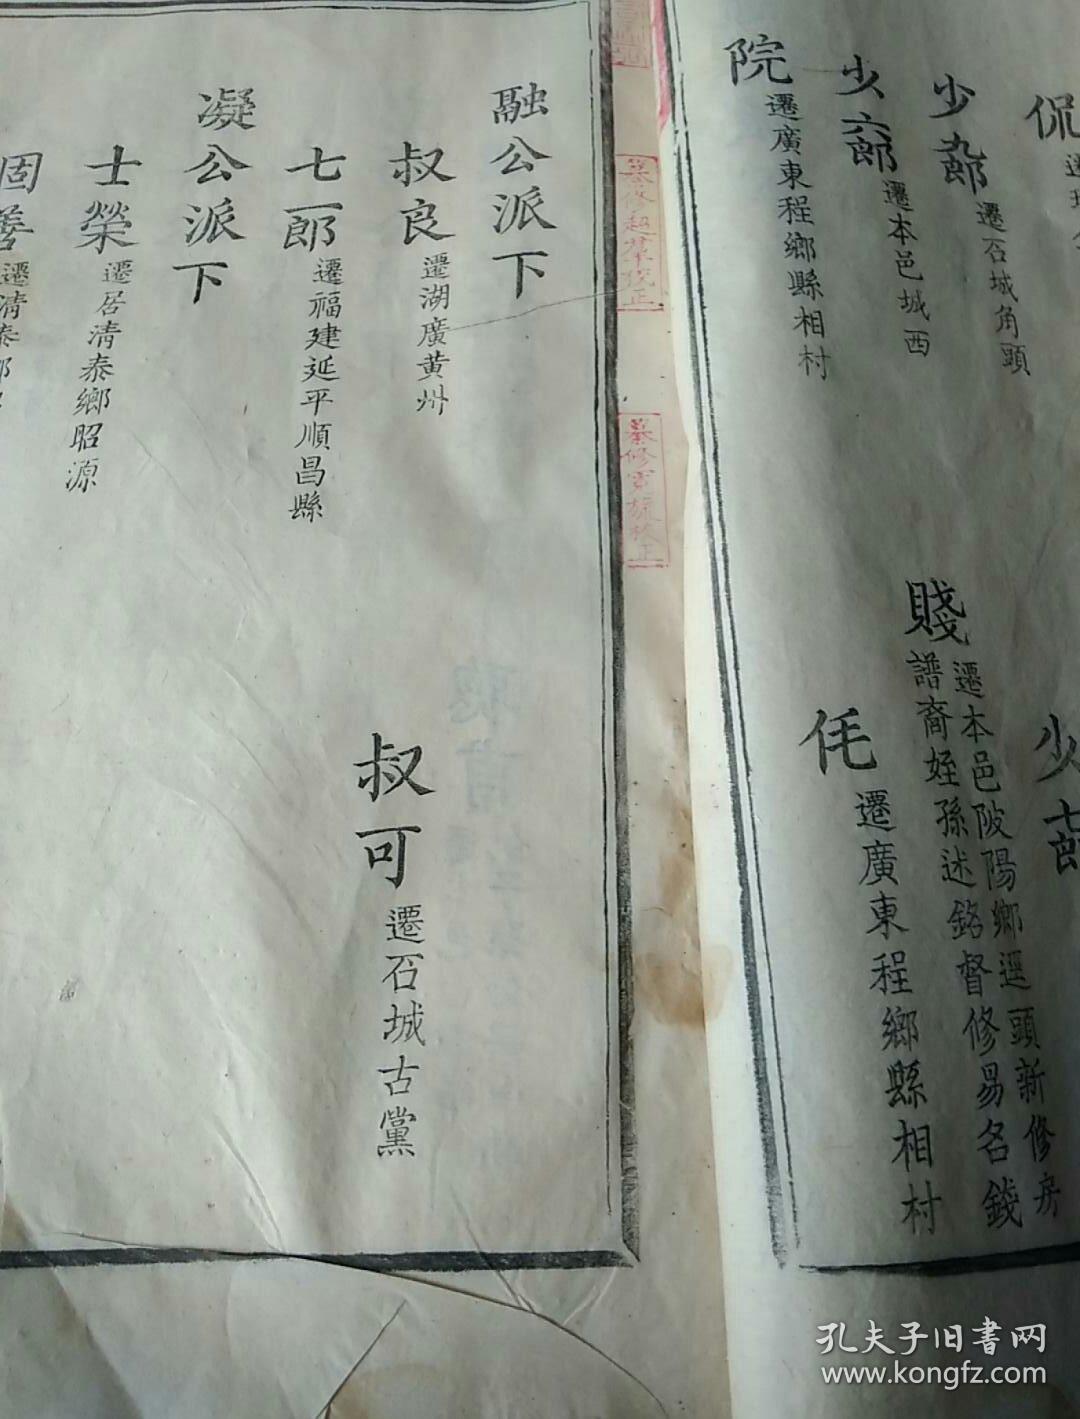 侃
少九郎 遷石城角頭
少六郎 遷本邑城西
院 遷廣東程鄉縣相村
賤 遷本邑陂陽鄉逕頭新修房
譜裔姪孫述銘督修易名錢
仛 遷廣東程鄉縣相村
融公派下
叔良 遷湖廣黄州
七郎 遷福建延平順昌縣
叔可 遷石城古黨
凝公派下
士榮 遷居清泰鄉昭源
固善 遷清泰
孔夫子旧书网
www.kongfz.com